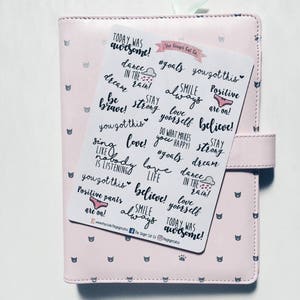 The Ginger Cat Co
TODAY WAS
awesome!
#goals
you got this
dance
IN THE
rain!
dream
SMILE
always
Positive
pants
are on!
be
brave!
STAY
strong
love
yourself
believe!
you got this
love
DO WHAT
MAKES
YOU
HAPPY!
STAY
strong
sing
LIKE
nobody
IS LISTENING
love
LIFE
#goals
dream
you got this
believe!
dance
IN THE
rain!
Positive pants
are on!
SMILE
always
love
yourself
TODAY WAS
awesome!
The Ginger Cat Co